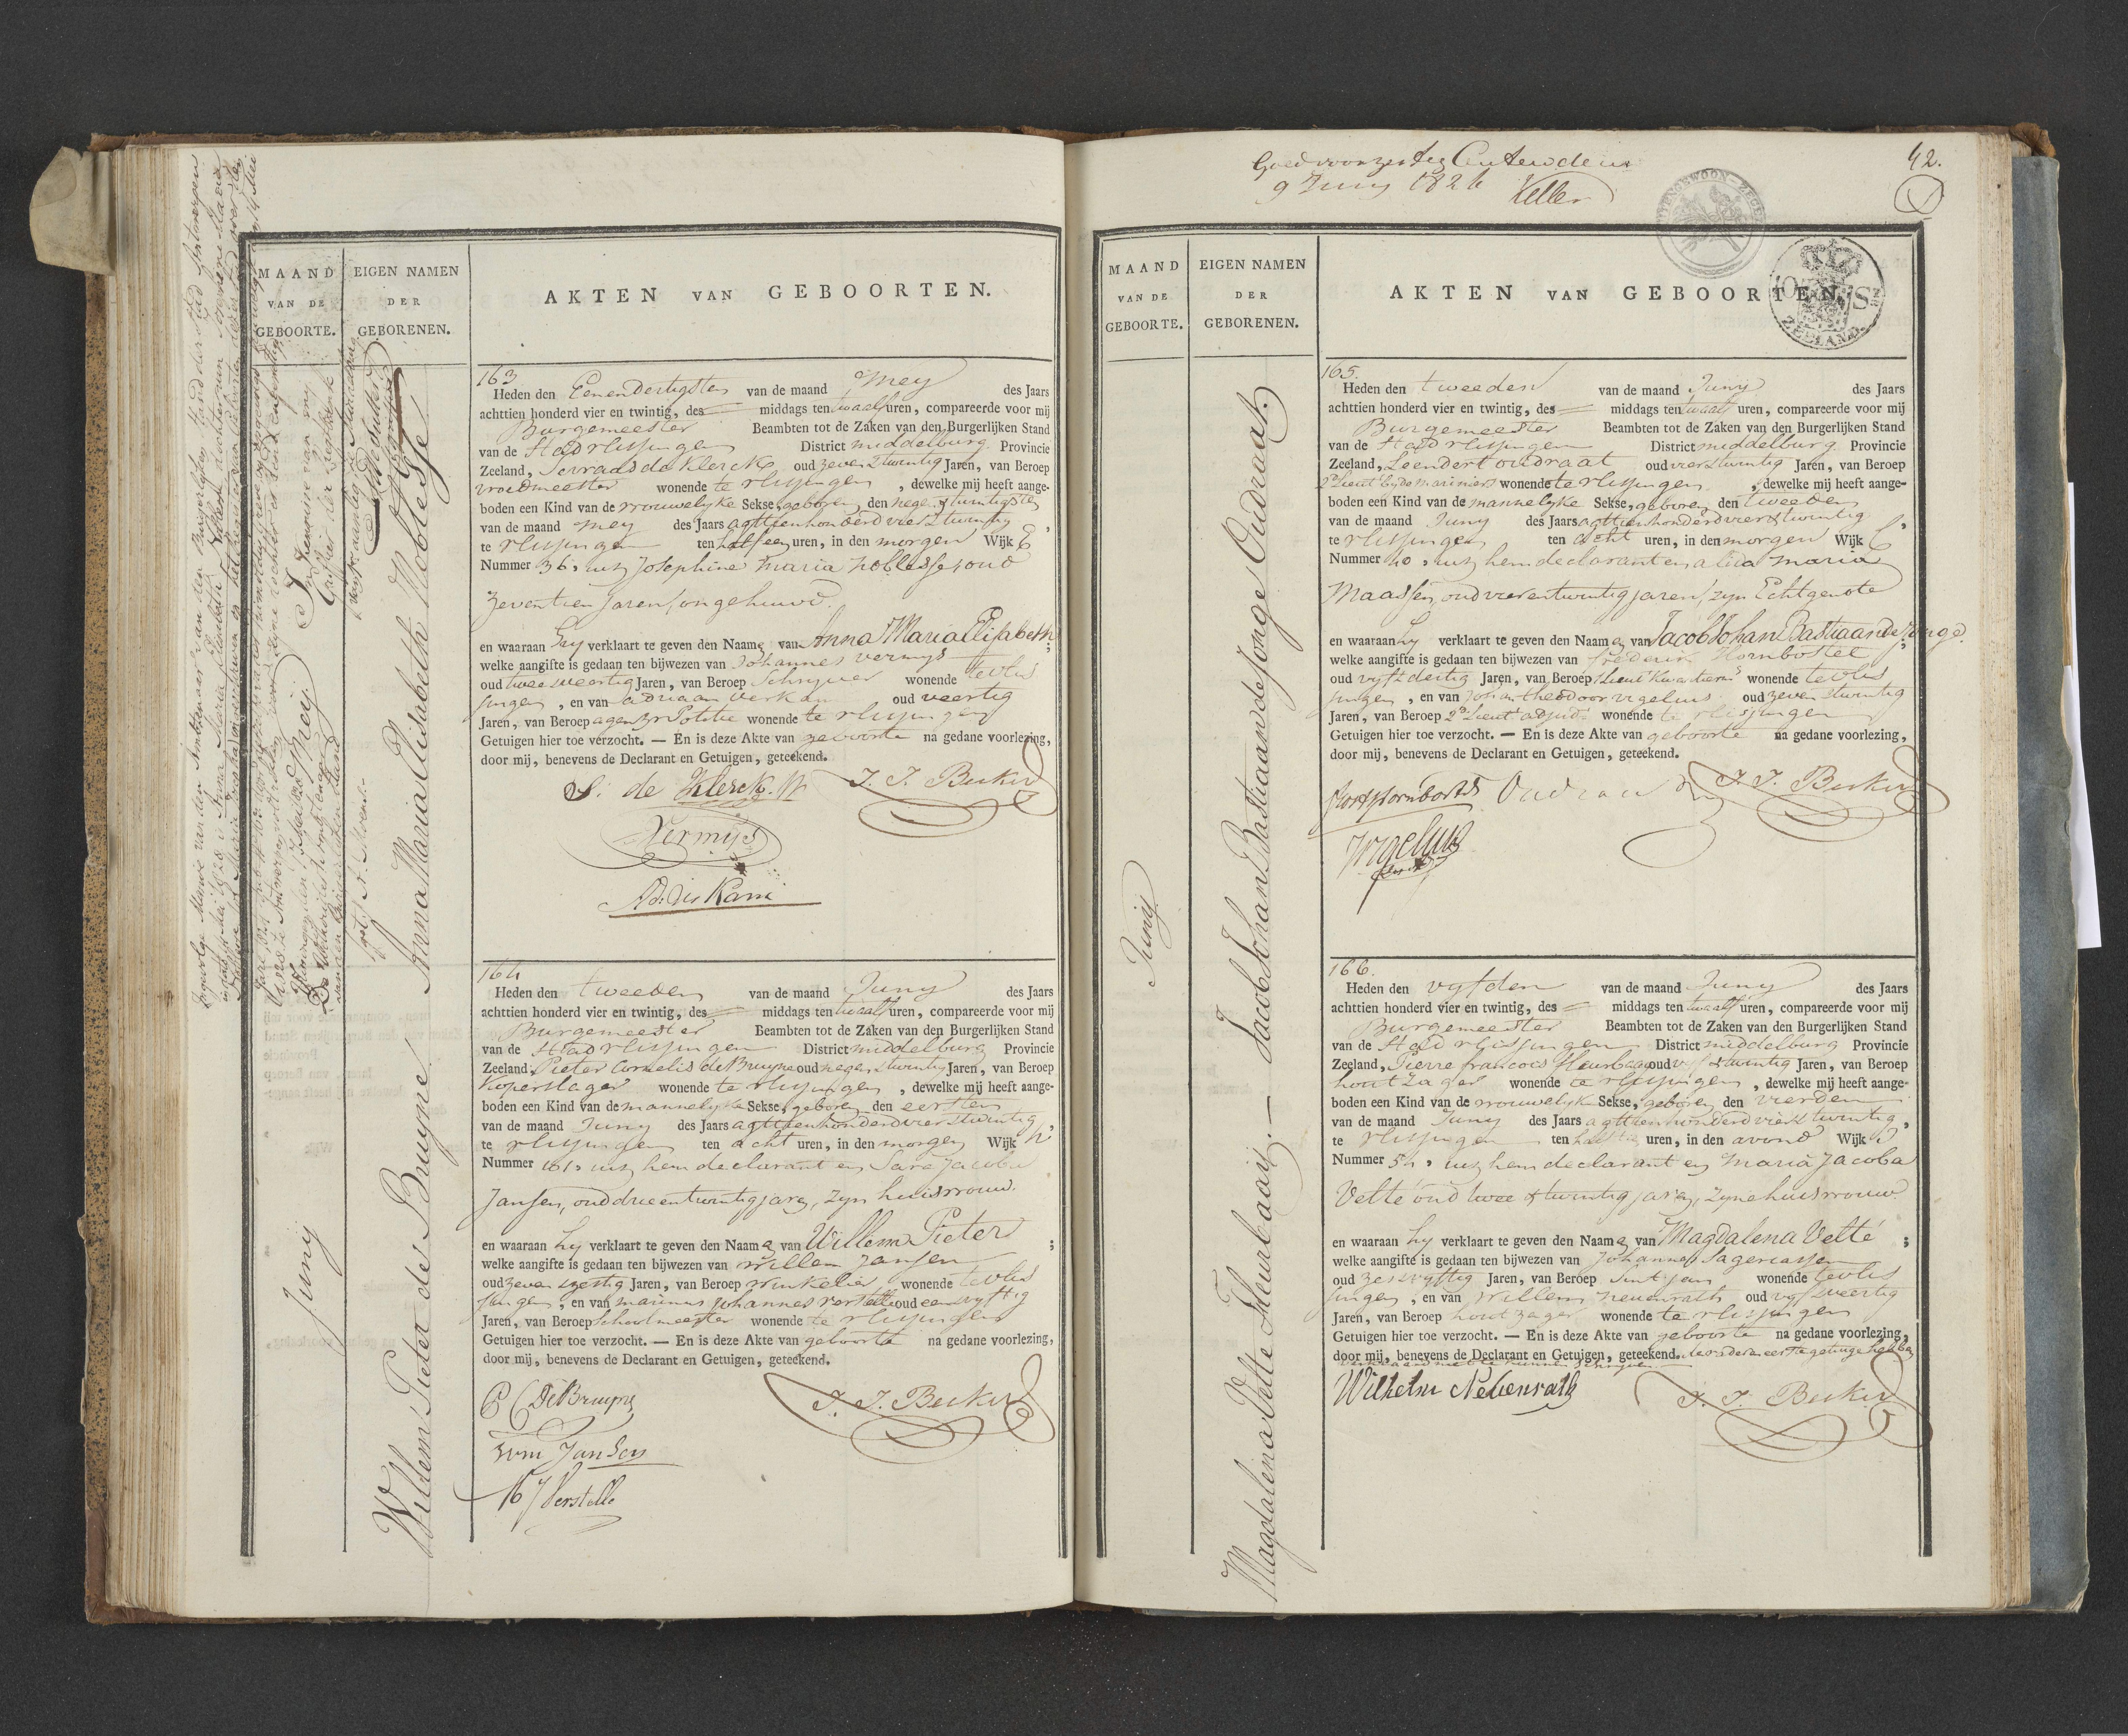 MAAND
VAN DE
GEBOORTE.
EIGEN NAMEN
DER
GEBORENEN.
AKTEN VAN GEBOORTEN.
Anna Maria Elisabeth Noblesse
Juny
Willem Pieter de Bruyne
163
Heden den Eenendertigsten van de maand Mey des Jaars
achttien honderd vier en twintig, des middags ten twaalf uren, compareerde voor mij
Burgemeester Beambten tot de Zaken van den Burgerlijken Stand
van de Stad Vlissingen District middelburg Provincie
Zeeland, de Klerck oud zeven & twintig Jaren, van Beroep
vroedmeester wonende te Vlissingen, dewelke mij heeft aange-
boden een Kind van de vrouwelyke Sekse, geboren den negen & twintigsten
van de maand mey des Jaars agttienhonderd vier & twintig,
te Vlissingen ten half een uren, in den morgen Wijk E
Nummer 36, uit Josephine Maria Noblesse, oud
zeventien Jaren, ongehuwd.
en waaraan hy verklaart te geven den Naame van Anna Maria Elisabeth;
welke aangifte is gedaan ten bijwezen van Johannes Vermys
oud twee & veertig Jaren, van Beroep Schryver wonende te Vlis
singen, en van Adriaan oud veertig
Jaren, van Beroep agent v Politie wonende te Vlissingen
Getuigen hier toe verzocht. — En is deze Akte van geboorte na gedane voorlezing,
door mij, benevens de Declarant en Getuigen, geteekend.
S. de Klerck J. J. Becker
Vermijs
164
Heden den tweeden van de maand Juny des Jaars
achttien honderd vier en twintig, des middags ten twaalf uren, compareerde voor mij
Burgemeester Beambten tot de Zaken van den Burgerlijken Stand
van de Stad Vlissingen District middelburg Provincie
Zeeland, Pieter Cornelis de Bruyne oud negen & twintig Jaren, van Beroep
koperslager wonende te Vlissingen, dewelke mij heeft aange-
boden een Kind van de mannelyke Sekse, geboren den eersten
van de maand Juny des Jaars agttienhonderd vier & twintig,
te Vlissingen ten acht uren, in den morgen Wijk
Nummer 161, uit hem declarant en Sara Jacoba
Jansen, oud drie en twintig jaren, zyn huisvrouw.
en waaraan hy verklaart te geven den Naame van Willem Pieter;
welke aangifte is gedaan ten bijwezen van Willem Jansen
oud zeven & zestig Jaren, van Beroep winkelier, wonende te Vlis
singen, en van marinus Johannes Verstelle oud een & vyftig
Jaren, van Beroep schoolmeester wonende te Vlissingen
Getuigen hier toe verzocht. — En is deze Akte van geboorte na gedane voorlezing,
door mij, benevens de Declarant en Getuigen, geteekend.
P C De Bruyne J. J. Becker
Wm Jansen
M J Verstelle
9 Juny 1824 Keller
42.
ZEELAND
MAAND
VAN DE
GEBOORTE.
EIGEN NAMEN
DER
GEBORENEN.
AKTEN VAN GEBOORTEN.
Juny
Jacob Johan Bastiaan de Jonge Oudraat.
Magdalena Velte Fleurbaaij. —
165.
Heden den tweeden van de maand Juny des Jaars
achttien honderd vier en twintig, des middags ten twaalf uren, compareerde voor mij
Burgemeester Beambten tot de Zaken van den Burgerlijken Stand
van de Stad Vlissingen District middelburg Provincie
Zeeland, Leendert Oudraat oud vier & twintig Jaren, van Beroep
2e Lieut by de Mariniers wonende te Vlissingen, dewelke mij heeft aange-
boden een Kind van de mannelyke Sekse, geboren den tweeden
van de maand Juny des Jaars agttienhonderd vier & twintig,
te Vlissingen ten acht uren, in den morgen Wijk
Nummer 40, uit hem declarant en Alida Maria
Maassen, oud vierentwintig jaren, zyn Echtgenote
en waaraan hy verklaart te geven den Naame van Jacob Johan Bastiaan de Jonge;
welke aangifte is gedaan ten bijwezen van Frederik Hornbostel
oud vyf & dertig Jaren, van Beroep wonende te Vlis
singen, en van Johan Theodoor Vigelius oud zeven & twintig
Jaren, van Beroep 2e Lieut adjud wonende te Vlissingen
Getuigen hier toe verzocht. — En is deze Akte van geboorte na gedane voorlezing,
door mij, benevens de Declarant en Getuigen, geteekend.
Oudraat J. J. Becker
Vigelius
166.
Heden den vyfden van de maand Juny des Jaars
achttien honderd vier en twintig, des middags ten twaalf uren, compareerde voor mij
Burgemeester Beambten tot de Zaken van den Burgerlijken Stand
van de Stad Vlissingen District middelburg Provincie
Zeeland, Pierre francois Fleurbaay oud vyf & twintig Jaren, van Beroep
houtzager wonende te Vlissingen, dewelke mij heeft aange-
boden een Kind van de vrouwelyke Sekse, geboren den vierden
van de maand Juny des Jaars agttienhonderd vier & twintig,
te Vlissingen ten half uren, in den avond Wijk
Nummer 54, uit hem declarant en Maria Jacoba
Velte oud twee & twintig jaren, zyne huisvrouw
en waaraan hy verklaart te geven den Naame van Magdalena Velté;
welke aangifte is gedaan ten bijwezen van Johannes
oud zes & vyftig Jaren, van Beroep wonende te Vlis
singen, en van Willem Nevenrath oud vyf & veertig
Jaren, van Beroep houtzager wonende te Vlissingen
Getuigen hier toe verzocht. — En is deze Akte van geboorte na gedane voorlezing,
door mij, benevens de Declarant en Getuigen, geteekend. de vader en eerste getuige hebben
verklaard niet te kunnen schryven
Wilhelm Nebenrath J. J. Becker